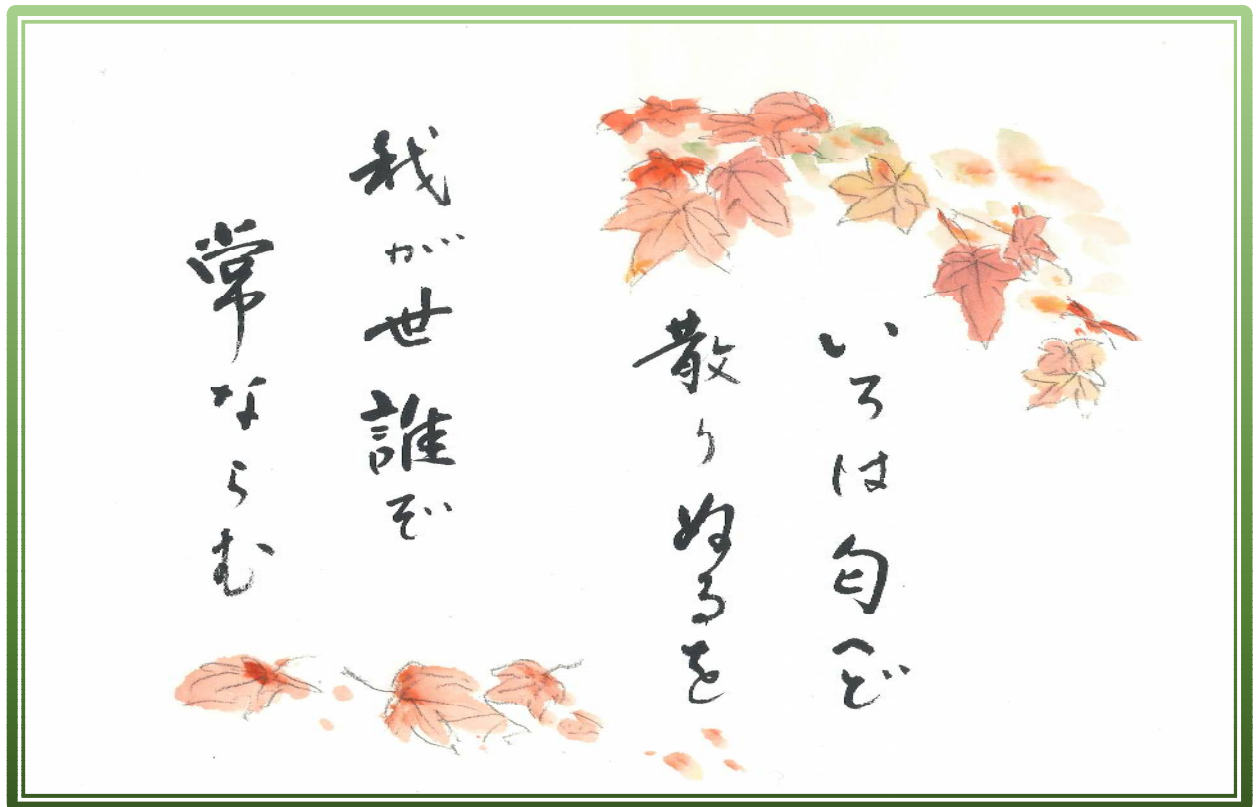 いろは匂へど
散りぬるを
我が世誰ぞ
常ならむ